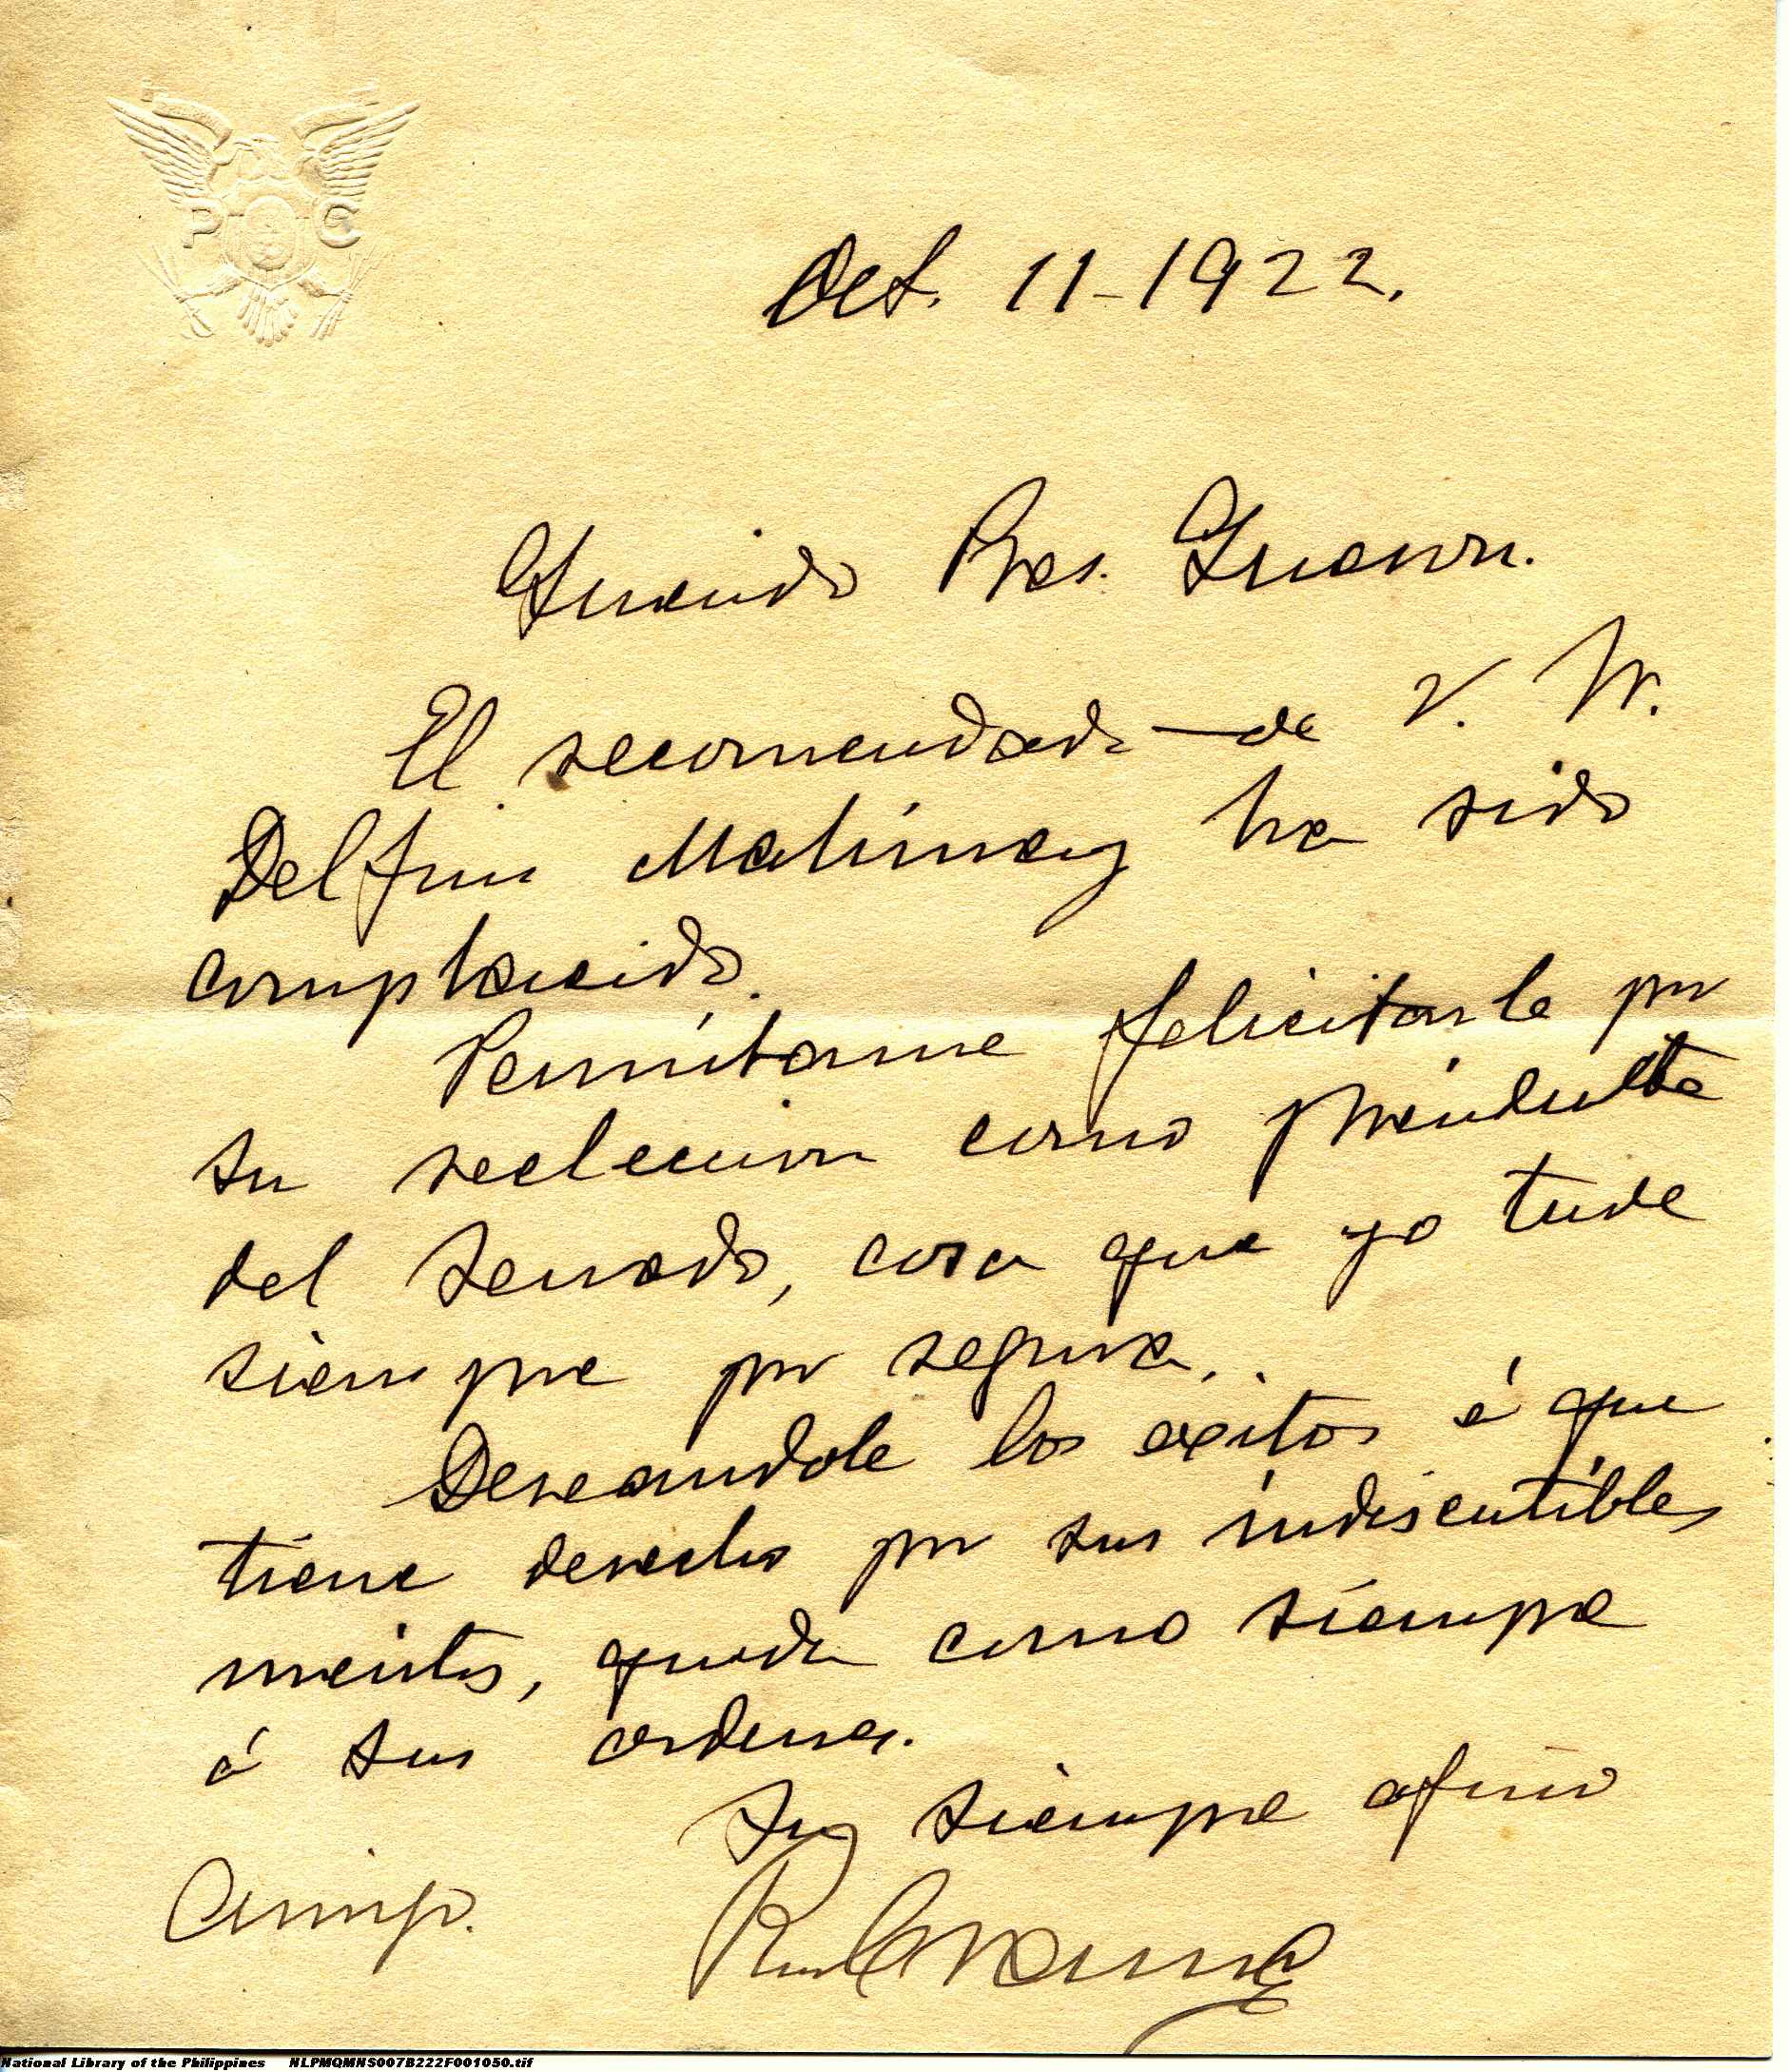 P C
Oct. 11-1922.
Querido Pres. Quezon.
El recomendado de V. M.
Delfin Mahinay ha sido
complacido.
Permítame felicitarle por
su reeleccion como presidente
del Senado, cosa que yo tuve
siempre por segura.
Deseandole los exitos á que
tiene derecho por sus indiscutibles
meritos, queda como siempre
á sus ordenes.
Su siempre afmo
Amigo.
National Library of the Philippines NLPMQMNS007B222F001050.tif